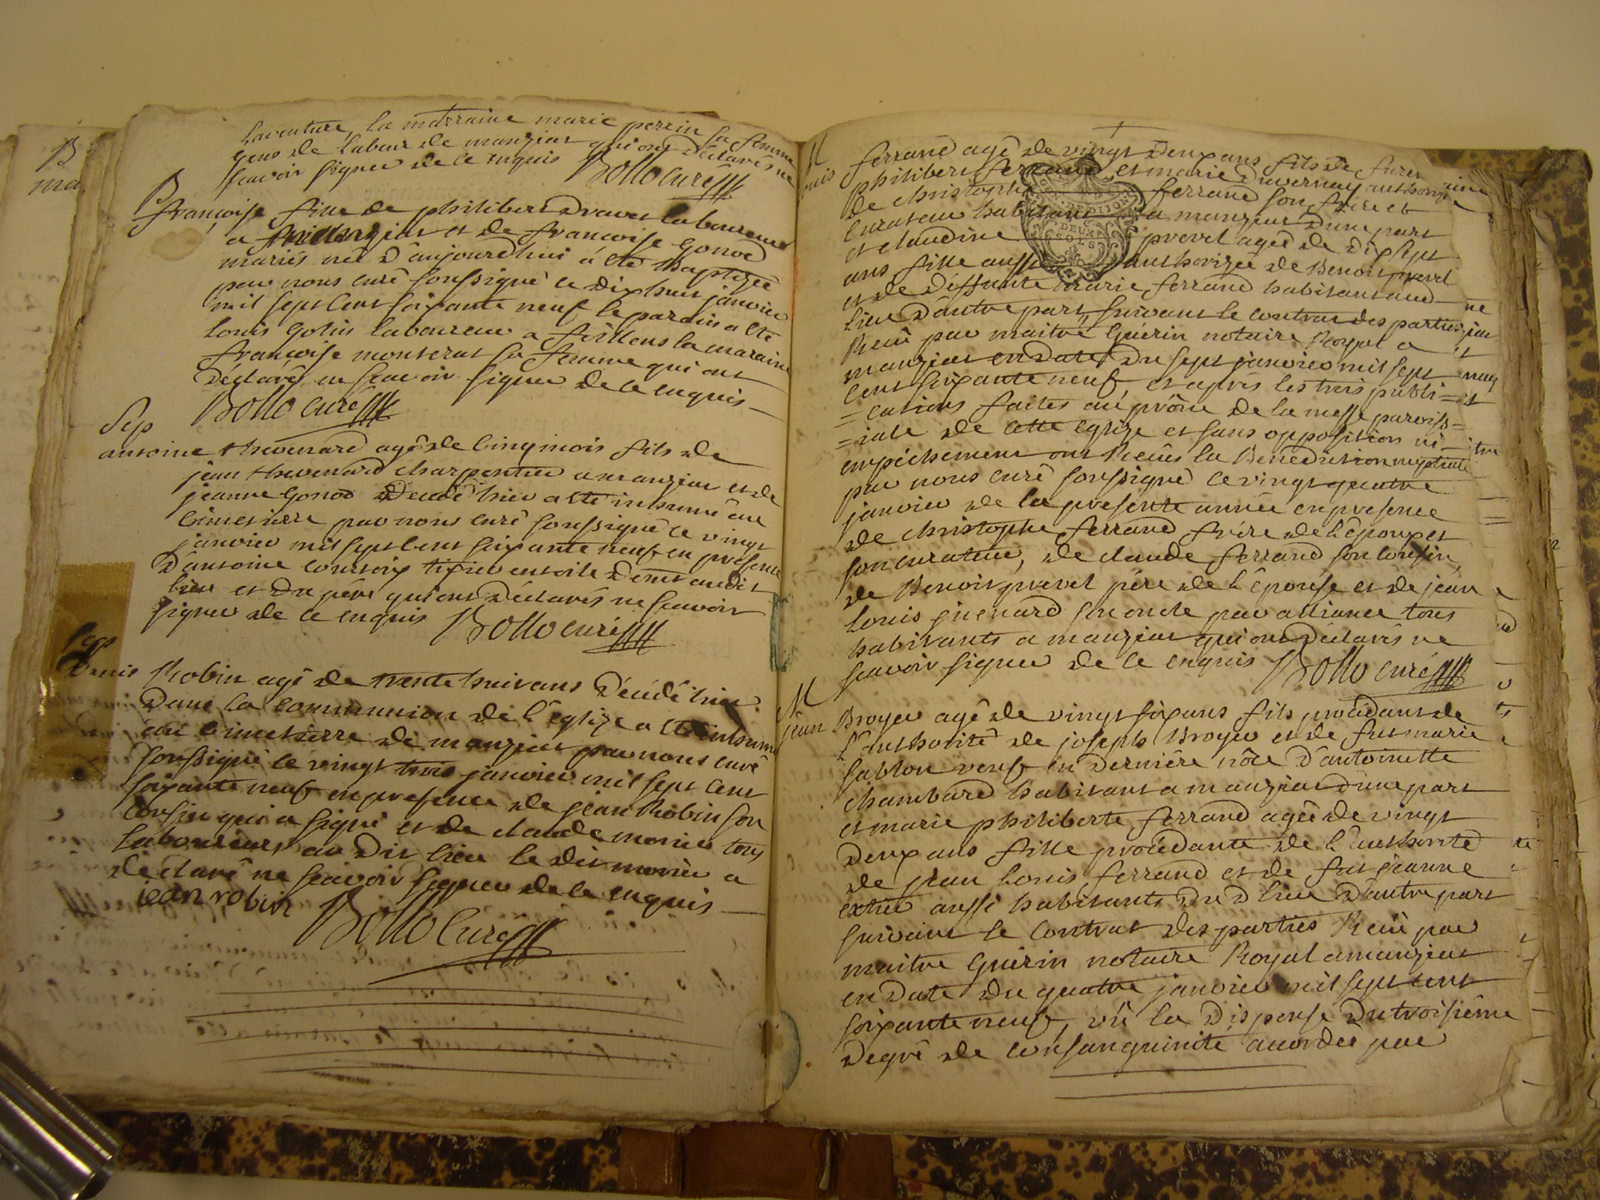 B
ma
laventure, la marraine marie perrin sa femme
gens de labeur de manziat qui ont déclarés ne
scavoir signer de ce enquis Bollo curé
B
françoise fille de philibert Dravet laboureur
a manziat et de francoise gonod
mariés née d'aujourdhui a été Baptizée
par nous curé soussigné le dix huit janvier
mil sept cent soixante neuf le parain a été
louis gotin laboureur a la maraine
françoise monterat sa femme qui ont
Déclarés ne scavoir signer de ce enquis
Bollo curé
Sep
antoine thevenard agé de cinq mois fils de
jean thevenard charpentier a manziat et de
jeanne gonod Decedé hier a été inhumé au
cimetierre par nous curé soussigné ce vingt
janvier mil sept cent soixante neuf en presence
D'antoine tixier en toile Demt audit
lieu et du pére qui ont Déclarés ne scavoir
signer de ce enquis Bollo curé
Sep
Denis Robin agé de trente huit ans Décédé hier
Dans la communion de l'églize a été inhumé
au cimetierre de manziat par nous curé
soussigné le vingt trois janvier mil sept cent
soixante neuf en presence de jean Robin son
cousin qui a signé et de claude morier tous
laboureurs au Dit lieu le dit morier a
declaré ne scavoir signer de ce enquis
jean robin Bollo Curé
M
ferrand agé de vingt Deux ans fils de
philibert ferrand et marie Duvernay authorisé
de christophe ferrand son frére et
curateur habitant a manziat d'une part
et claudine prevel agée de dix sept
ans fille aussi authorizée de Benoit prevel
et de Déffunte marie ferrand habitants aud
lieu D'autre part, suivant le contrat des parties
Recû par maitre Guérin notaire Royal a
manziat en Date du sept janvier mil sept
cent soixante neuf et aprés les trois publi=
=cations faites au prône de la messe paroiss=
=iale de cette eglize et sans opposition ni
empéchement ont Recûs la Bénédiction nuptiale
par nous curé soussigné ce vingt quatre
janvier de la presente année en presence
de christophe ferrand frére de l'époux et
son curateur, de claude ferrand son cousin,
de Benoit prevel pére de l'épouse et de jean
louis guenard son oncle par alliance tous
habitants a manziat qui ont Declarés ne
scavoir signer de ce enquis Bollo curé
M
jean Broyer agé de vingt six ans fils procédant de
l'authorité de joseph Broyer et de fut marie
sablon veuf en derniére nôce d'antoinette
chambard habitant a manziat d'une part
et marie philiberte ferrand agée de vingt
deux ans fille procédante de l'authorité
de jean louis ferrand et de fut jeanne
aussi habitants Du d lieu D'autre part
suivant le contrat des parties Recû par
maitre Guérin notaire Royal a manziat
en Date du quatre janvier mil sept cent
soixante neuf, vû la Dispense du troisiéme
degré de consanguinité accordée par